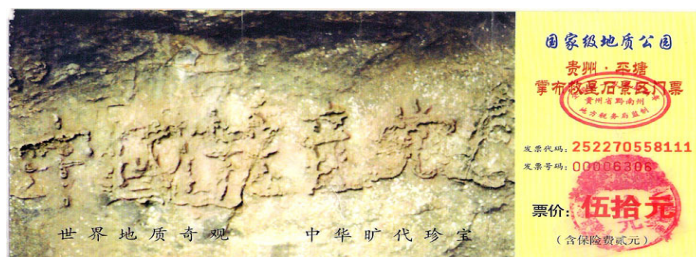 中国共產党亡
世界地质奇观 中华旷代珍宝
国家级地质公园
贵州·平塘
掌布救星石景区门票
贵州省黔南州
地方税务局监制
发票代码：252270558111
发票号码：00006306
票价：伍拾元
（含保险费贰元）